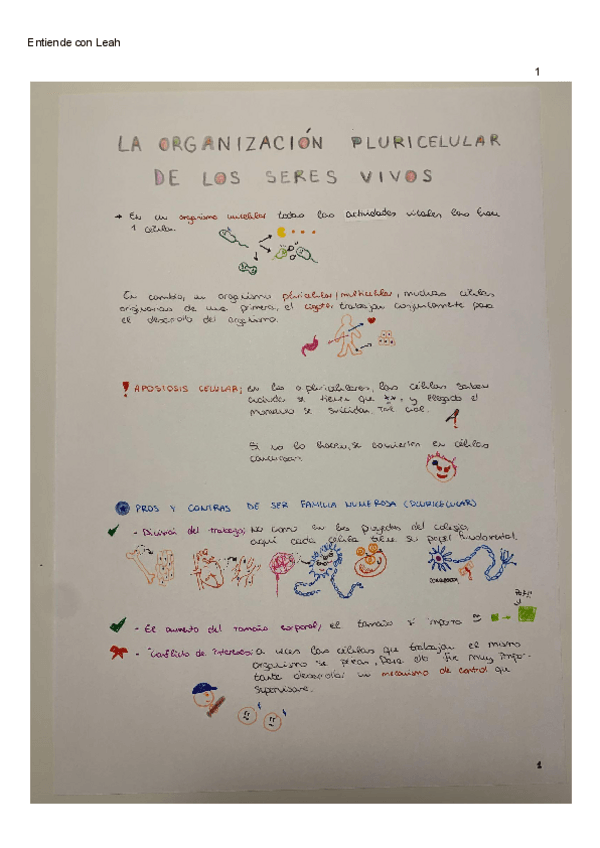 Entiende con Leah
1
LA ORGANIZACIÓN PLURICELULAR
DE LOS SERES VIVOS
→ En un organismo unicelular todas las actividades vitales las hace
1 célula.
En cambio, un organismo pluricelular/multicelular, muchas células
originarias de una primera, el cigoto, trabajan conjuntamente para
el desarrollo del organismo.
! APOSTOSIS CELULAR; en los o. pluricelulares, las células saben
cuándo se tienen que **, y llegado el
momento se suicidan. Tal cual.
Si no lo hacen, se convierten en células
cancerosas.
PROS Y CONTRAS DE SER FAMILIA NUMEROSA (PLURICELULAR)
- División del trabajo; No como en los proyectos del colegio,
aquí cada célula tiene su papel fundamental.
- El aumento del tamaño corporal; el tamaño sí importa
- Conflicto de intereses: a veces las células que trabajan el mismo
organismo se pelean. Para ello fue muy impor-
tante desarrollar un mecanismo de control que
supervisare.
1